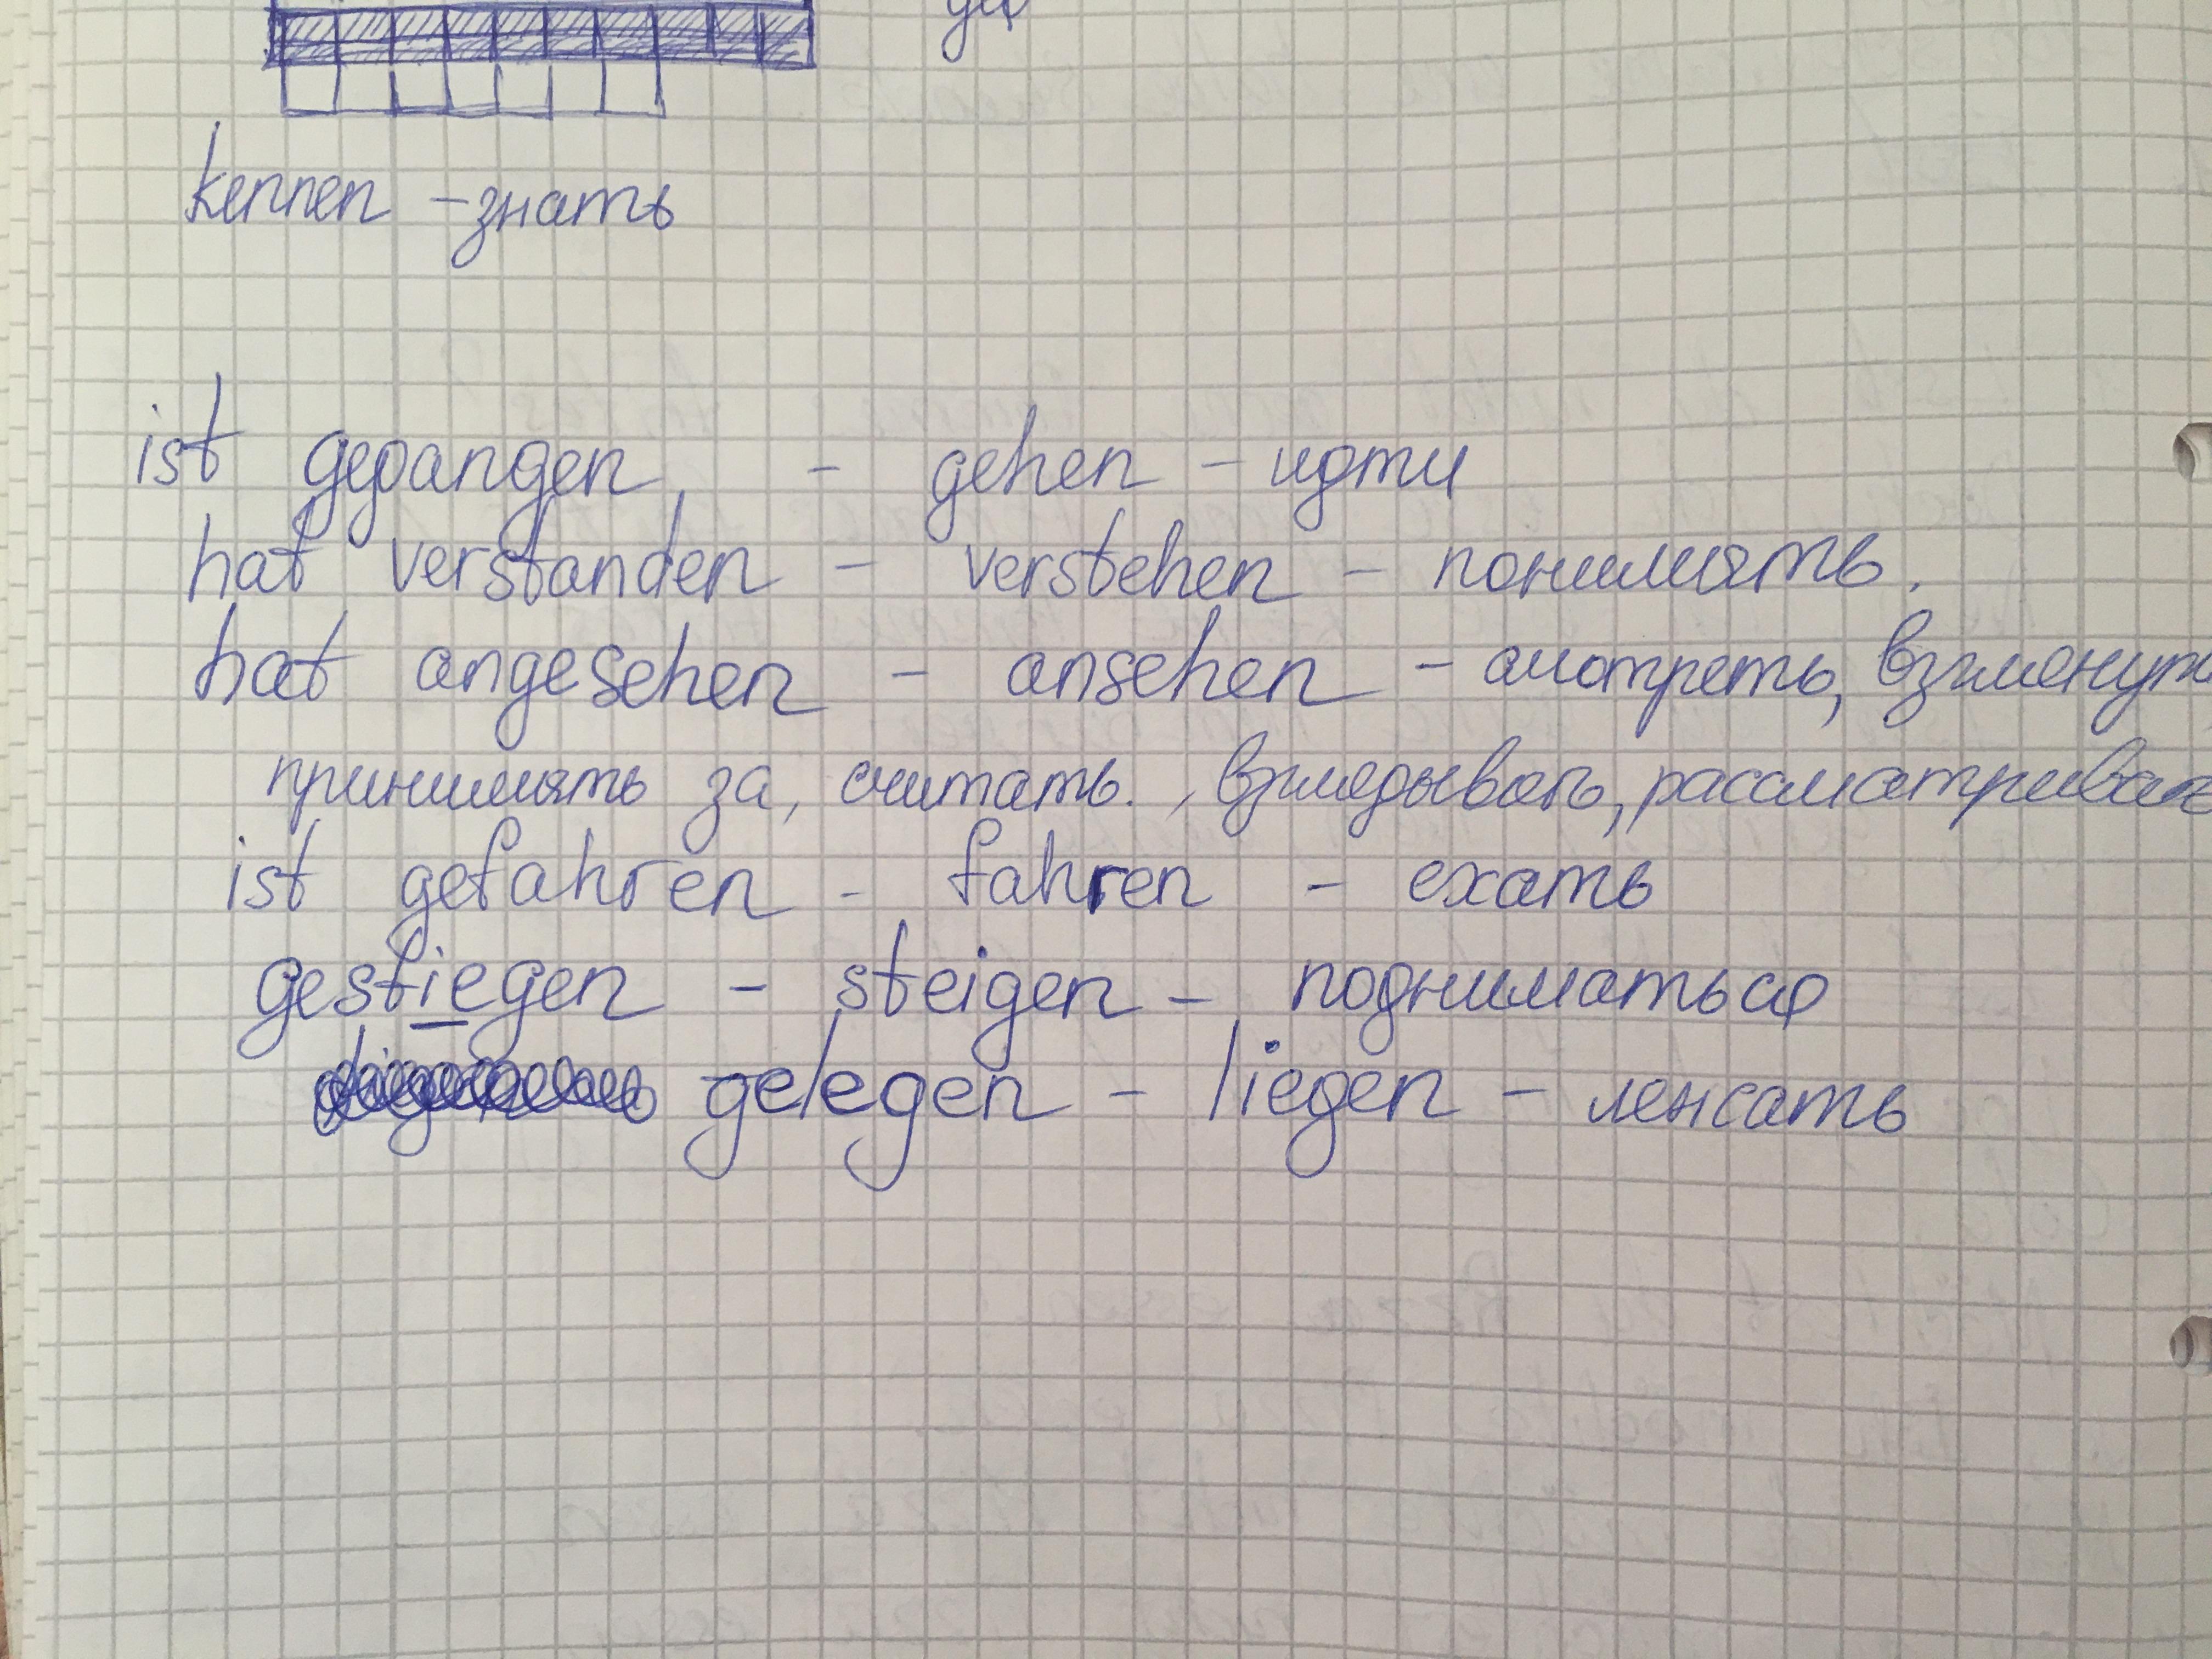 kennen - знать
ist gegangen - gehen - идти
hat verstanden - verstehen - понимать.
hat angesehen - ansehen - смотреть,
принимать за, считать., взгледывать, рассматривать
ist gefahren - fahren - ехать
gestiegen - steigen - подниматься
gelegen - liegen - лежать